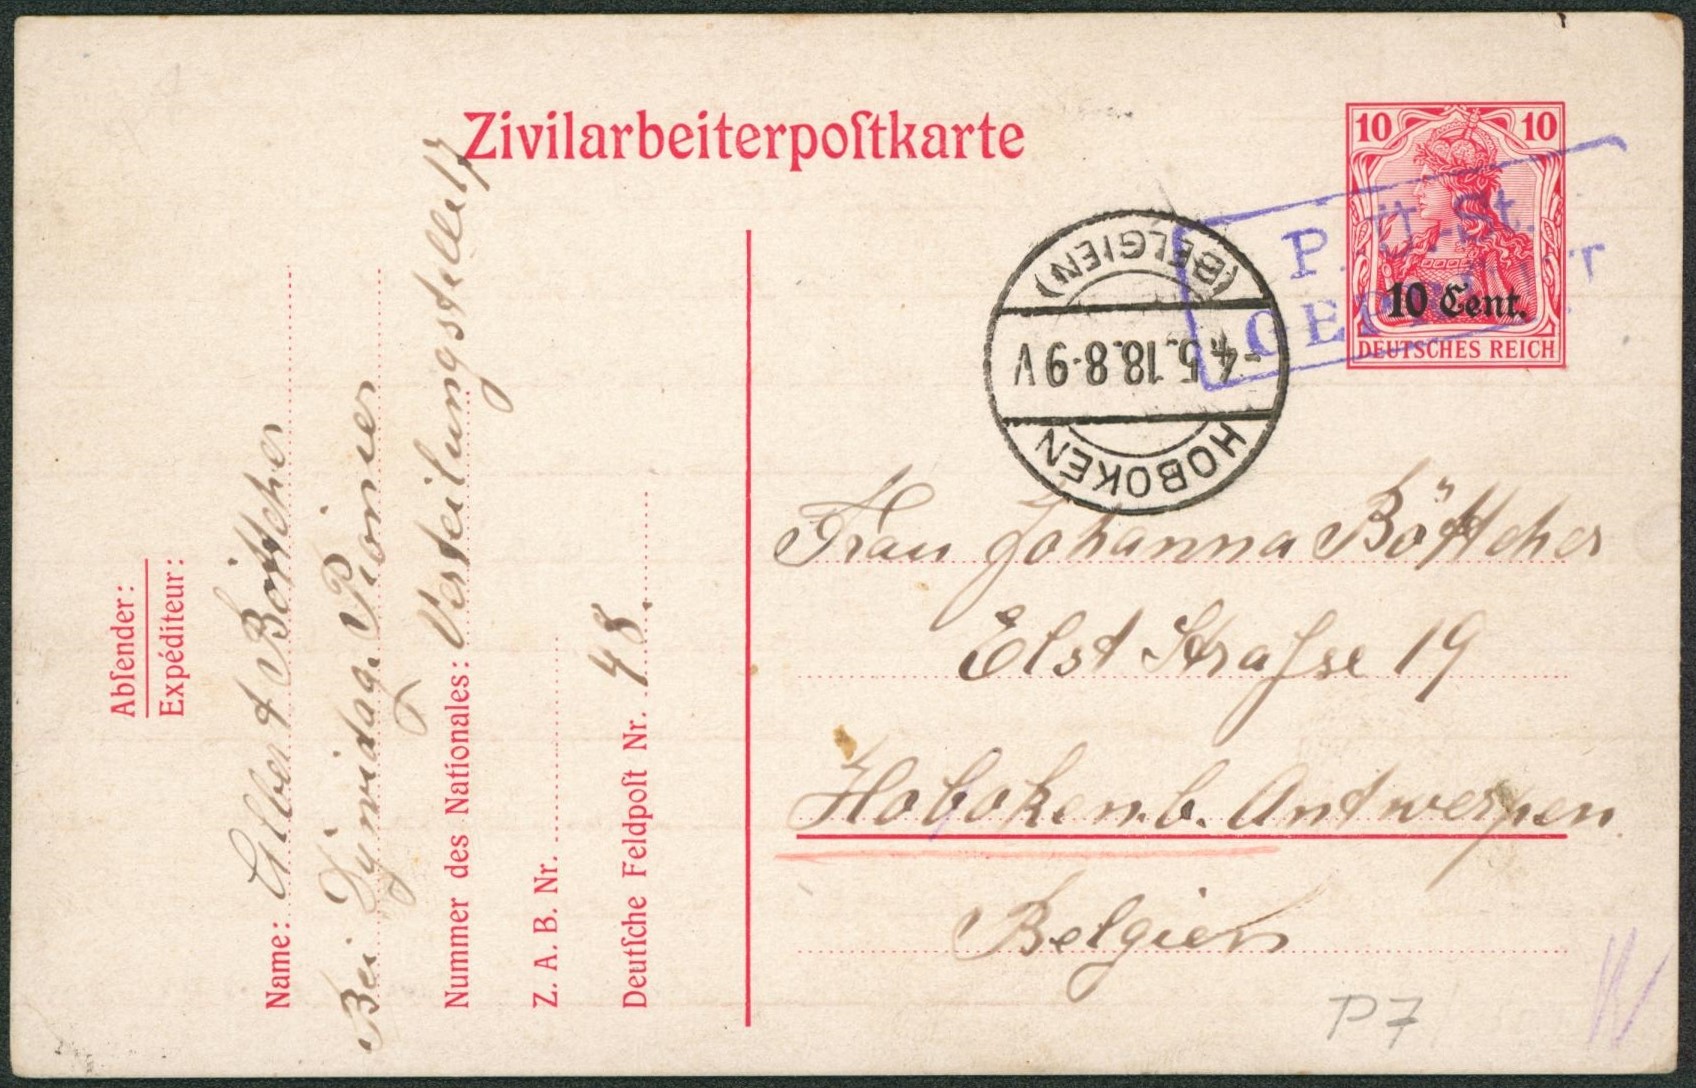 Zivilarbeiterpoſtkarte
10 10
10 Cent.
DEUTSCHES REICH
P. Ü. St.
HOBOKEN
-4.5.18.8-9V
(BELGIEN)
Abſender:
Expéditeur:
Name: Albert Böttcher
Bei
Pionier
Nummer des Nationales: Verteilungsstelle 17
Z. A. B. Nr.
Deutſche Feldpoſt Nr. 48.
Frau Johanna Böttcher
Elst Strafse 19
Hoboken b. Antwerpen
Belgien
P7